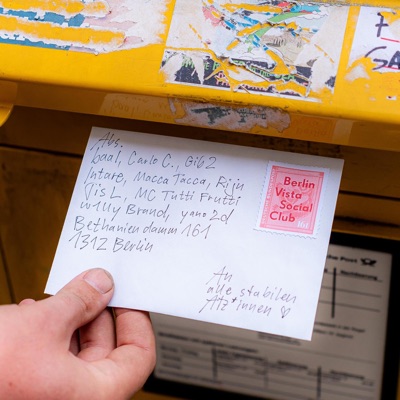 Abs.
baal, Carlo C., Gibz
Intare, Macca Tacca, Rijn
Tis L, MC Tutti Frutti
willy Brand, yano 2d
Bethaniendamm 161
1312 Berlin
Berlin
Vista
Social
Club
An
alle stabilen
Atz*innen